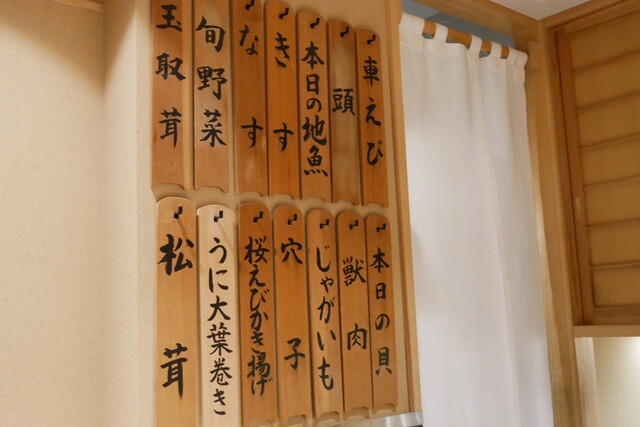 車えび
頭
本日の地魚
きす
なす
旬野菜
玉取茸
本日の貝
獣肉
じゃがいも
穴子
桜えびかき揚げ
うに大葉巻き
松茸